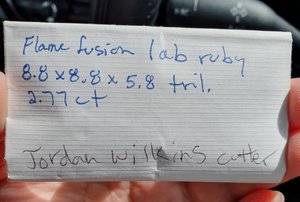 Flame fusion lab ruby
8.8 x 8.8 x 5.8 tril.
2.77 ct
Jordan Wilkins cutter